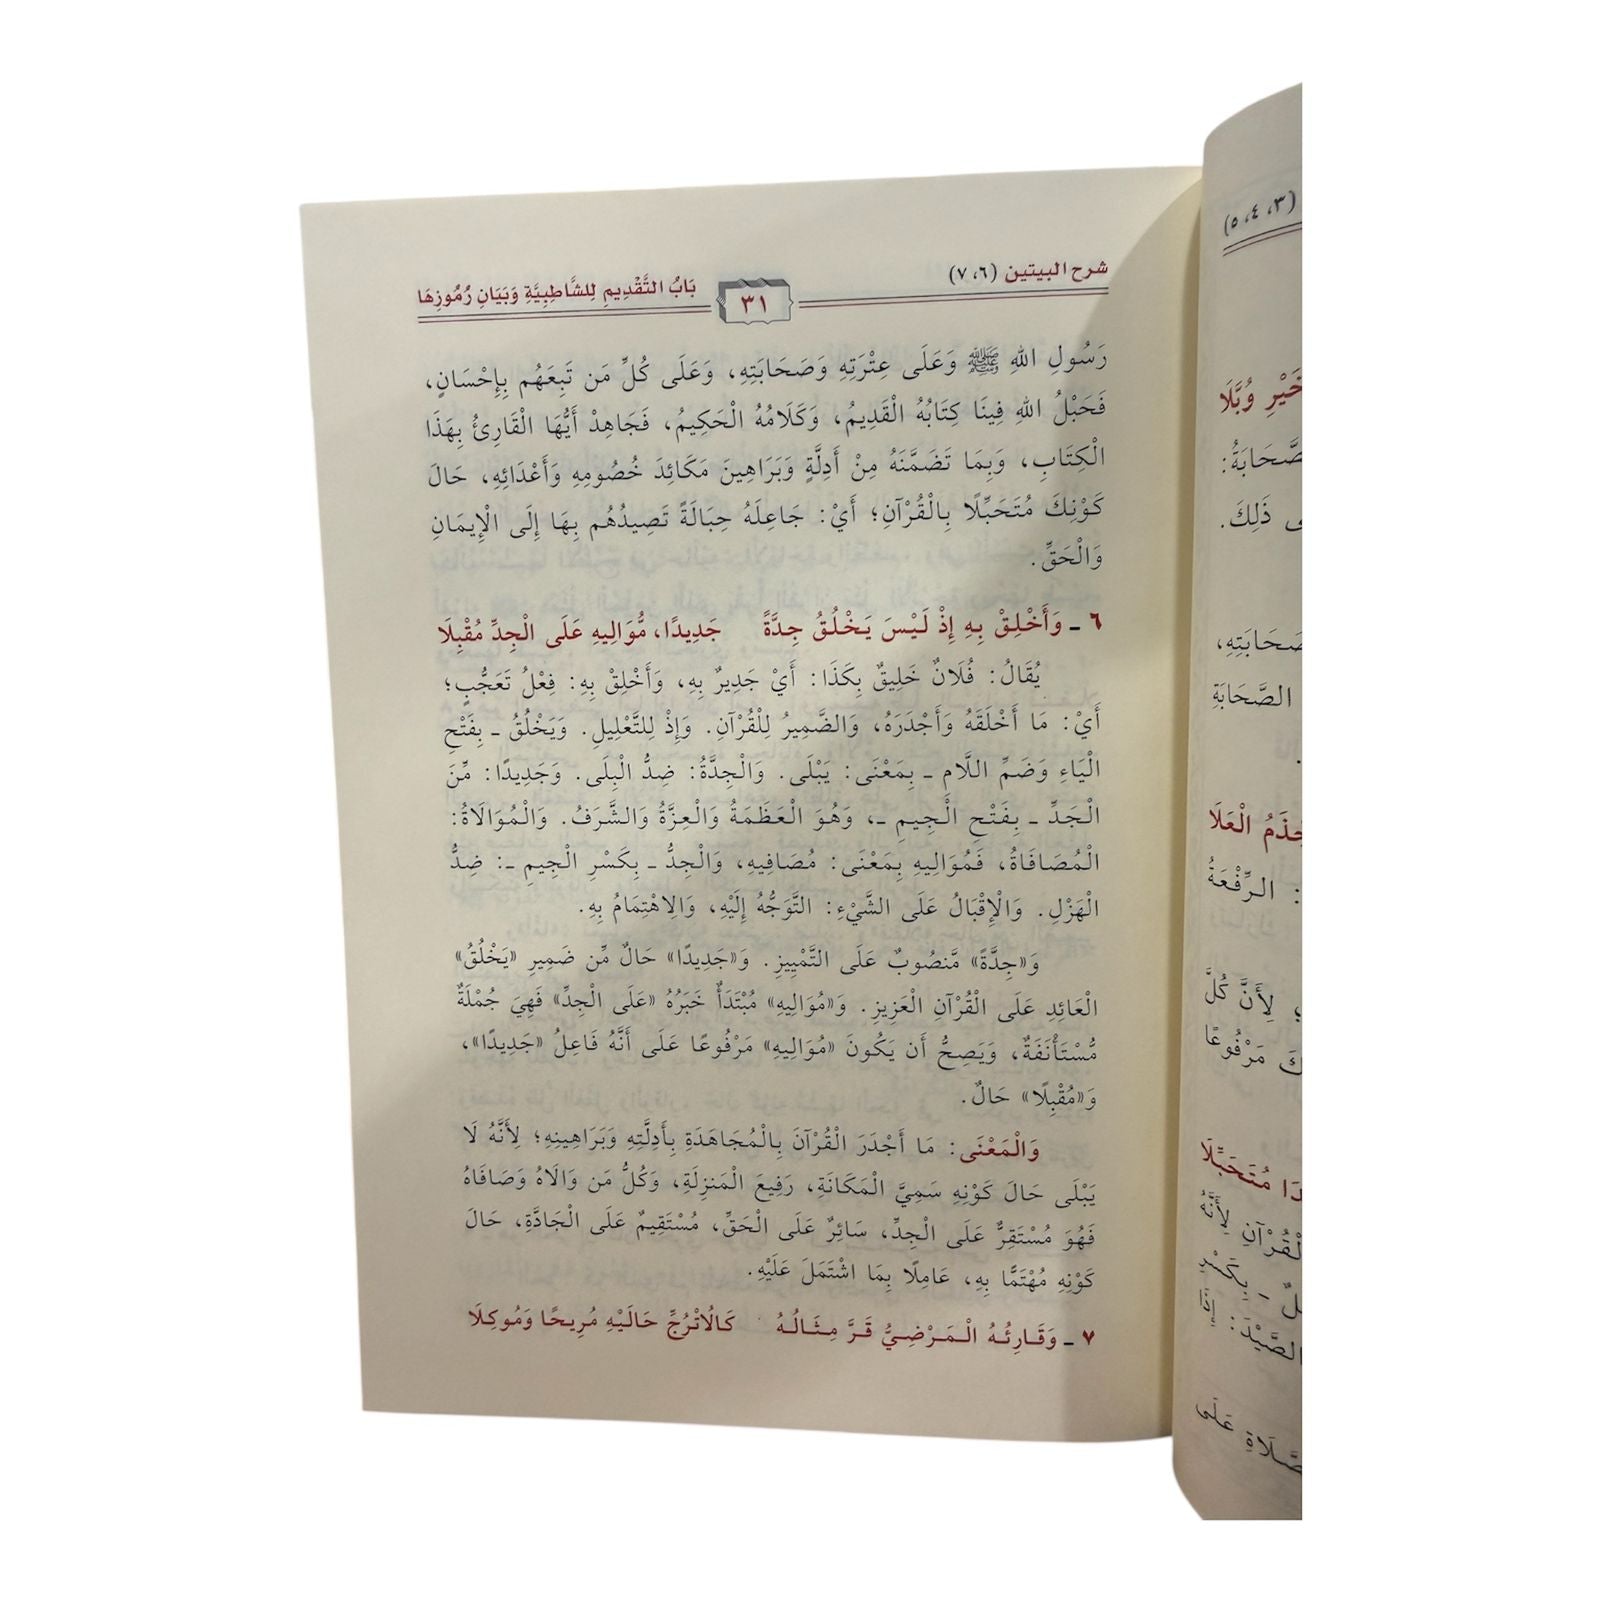 شرح البيتين (٦، ٧)
٣١
بَابُ التَّقْدِيمِ لِلشَّاطِبِيَّةِ وَبَيَانِ رُمُوزِهَا
رَسُولِ اللهِ ﷺ وَعَلَى عِتْرَتِهِ وَصَحَابَتِهِ، وَعَلَى كُلِّ مَن تَبِعَهُم بِإِحْسَانٍ،
فَحَبْلُ اللهِ فِينَا كِتَابُهُ الْقَدِيمُ، وَكَلَامُهُ الْحَكِيمُ، فَجَاهِدْ أَيُّهَا الْقَارِئُ بِهَذَا
الْكِتَابِ، وَبِمَا تَضَمَّنَهُ مِنْ أَدِلَّةٍ وَبَرَاهِينَ مَكَائِدَ خُصُومِهِ وَأَعْدَائِهِ، حَالَ
كَوْنِكَ مُتَحَبِّلًا بِالْقُرْآنِ؛ أَيْ: جَاعِلَهُ حِبَالَةً تَصِيدُهُم بِهَا إِلَى الْإِيمَانِ
وَالْحَقِّ.
٦ ـ وَأَخْلِقْ بِهِ إِذْ لَيْسَ يَخْلُقُ جِدَّةً جَدِيدًا، مُّوَالِيهِ عَلَى الْجِدِّ مُقْبِلَا
يُقَالُ: فُلَانٌ خَلِيقٌ بِكَذَا: أَيْ جَدِيرٌ بِهِ، وَأَخْلِقْ بِهِ: فِعْلُ تَعَجُّبٍ؛
أَيْ: مَا أَخْلَقَهُ وَأَجْدَرَهُ، وَالضَّمِيرُ لِلْقُرْآنِ. وَإِذْ لِلتَّعْلِيلِ. وَيَخْلُقُ ـ بِفَتْحِ
الْيَاءِ وَضَمِّ اللَّامِ ـ بِمَعْنَى: يَبْلَى. وَالْجِدَّةُ: ضِدُّ الْبِلَى. وَجَدِيدًا: مِّنَ
الْجَدِّ ـ بِفَتْحِ الْجِيمِ ـ، وَهُوَ الْعَظَمَةُ وَالْعِزَّةُ وَالشَّرَفُ. وَالْمُوَالَاةُ:
الْمُصَافَاةُ، فَمُوَالِيهِ بِمَعْنَى: مُصَافِيهِ، وَالْجِدُّ ـ بِكَسْرِ الْجِيمِ ـ: ضِدُّ
الْهَزْلِ. وَالْإِقْبَالُ عَلَى الشَّيْءِ: التَّوَجُّهُ إِلَيْهِ، وَالِاهْتِمَامُ بِهِ.
وَ«جِدَّةً» مَّنصُوبٌ عَلَى التَّمْيِيزِ. وَ«جَدِيدًا» حَالٌ مِّن ضَمِيرِ «يَخْلُقُ»
الْعَائِدِ عَلَى الْقُرْآنِ الْعَزِيزِ. وَ«مُوَالِيهِ» مُبْتَدَأٌ خَبَرُهُ «عَلَى الْجِدِّ» فَهِيَ جُمْلَةٌ
مُّسْتَأْنَفَةٌ، وَيَصِحُّ أَن يَكُونَ «مُوَالِيهِ» مَرْفُوعًا عَلَى أَنَّهُ فَاعِلُ «جَدِيدًا»،
وَ«مُقْبِلًا» حَالٌ.
وَالْمَعْنَى: مَا أَجْدَرَ الْقُرْآنَ بِالْمُجَاهَدَةِ بِأَدِلَّتِهِ وَبَرَاهِينِهِ؛ لِأَنَّهُ لَا
يَبْلَى حَالَ كَوْنِهِ سَمِيَّ الْمَكَانَةِ، رَفِيعَ الْمَنزِلَةِ، وَكُلُّ مَن وَالَاهُ وَصَافَاهُ
فَهُوَ مُسْتَقِرٌّ عَلَى الْجِدِّ، سَائِرٌ عَلَى الْحَقِّ، مُسْتَقِيمٌ عَلَى الْجَادَّةِ، حَالَ
كَوْنِهِ مُهْتَمًّا بِهِ، عَامِلًا بِمَا اشْتَمَلَ عَلَيْهِ.
٧ ـ وَقَارِئُهُ الْمَرْضِيُّ قَرَّ مِثَالُهُ كَالُاتْرُجِّ حَالَيْهِ مُرِيحًا وَمُوكِلَا
(٣، ٤، ٥)
وُبَّلَا
ذَلِكَ.
الصَّحَابَةِ
الْعَلَا
: الرِّفْعَةُ
لِأَنَّ كُلَّ
مَرْفُوعًا
مُتَحَبِّلَا
الصَّيْدَ:
عَلَى